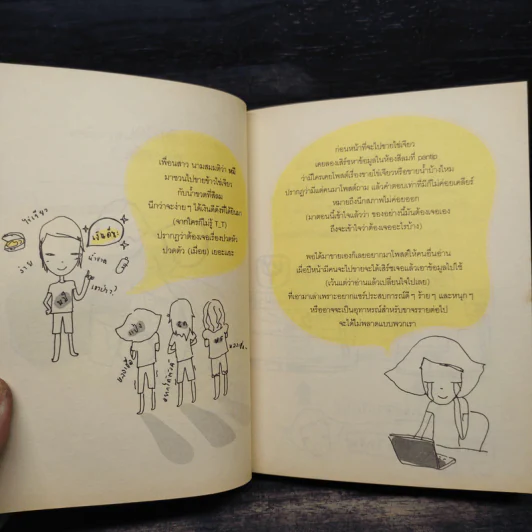 เพื่อนสาว นามสมมติว่า หมี
มาชวนไปขายข้าวไข่เจียว
กับน้ำขวดที่สีลม
นึกว่าจะง่าย ๆ ได้เงินดีดั่งที่ได้ยินมา
(จากใครก็ไม่รู้ T_T)
ปรากฏว่าต้องเจอเรื่องปวดหัว
ปวดตัว (เมื่อย) เยอะแยะ
ไข่เจียว
ง่าย
เงินดี๊ดี
น้ำขวด
เอาป่าว?
ก่อนหน้าที่จะไปขายไข่เจียว
เคยลองเสิร์ชหาข้อมูลในห้องสีลมที่ pantip
ว่ามีใครเคยโพสต์เรื่องขายไข่เจียวหรือขายน้ำบ้างไหม
ปรากฏว่ามีแต่คนมาโพสต์ถาม แต่คำตอบเท่าที่มีก็ไม่ค่อยเคลียร์
หมายถึงนึกสภาพไม่ค่อยออก
(มาตอนนี้เข้าใจแล้วว่า ของอย่างนี้มันต้องเจอเอง
ถึงจะเข้าใจว่าต้องเจออะไรบ้าง)
พอได้มาขายเองก็เลยอยากมาโพสต์ให้คนอื่นอ่าน
เผื่อปีหน้ามีคนจะไปขายจะได้เสิร์ชเจอแล้วเอาข้อมูลไปใช้
(เว้นแต่ว่าอ่านแล้วเปลี่ยนใจไปเลย)
ที่เอามาเล่าเพราะอยากแชร์ประสบการณ์ดี ๆ ร้าย ๆ และหนุก ๆ
หรืออาจจะเป็นอุทาหรณ์สำหรับขาจรรายต่อไป
จะได้ไม่พลาดแบบพวกเรา